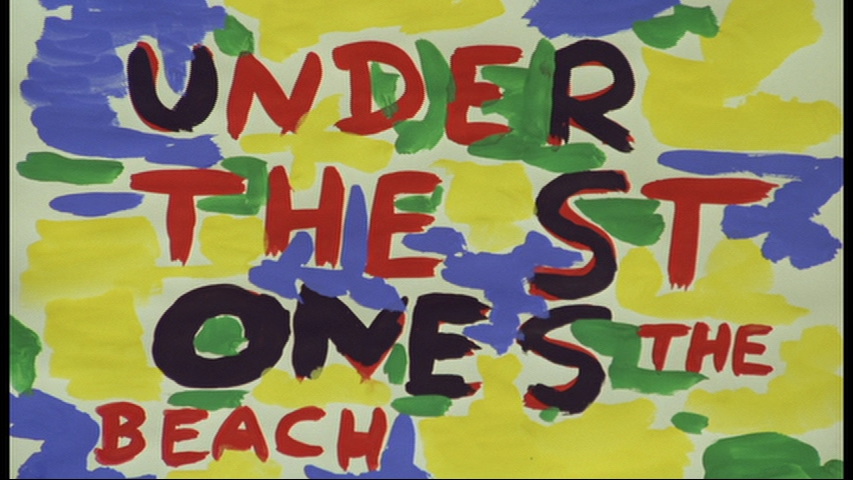 UNDER
THE ST
ONES THE
BEACH